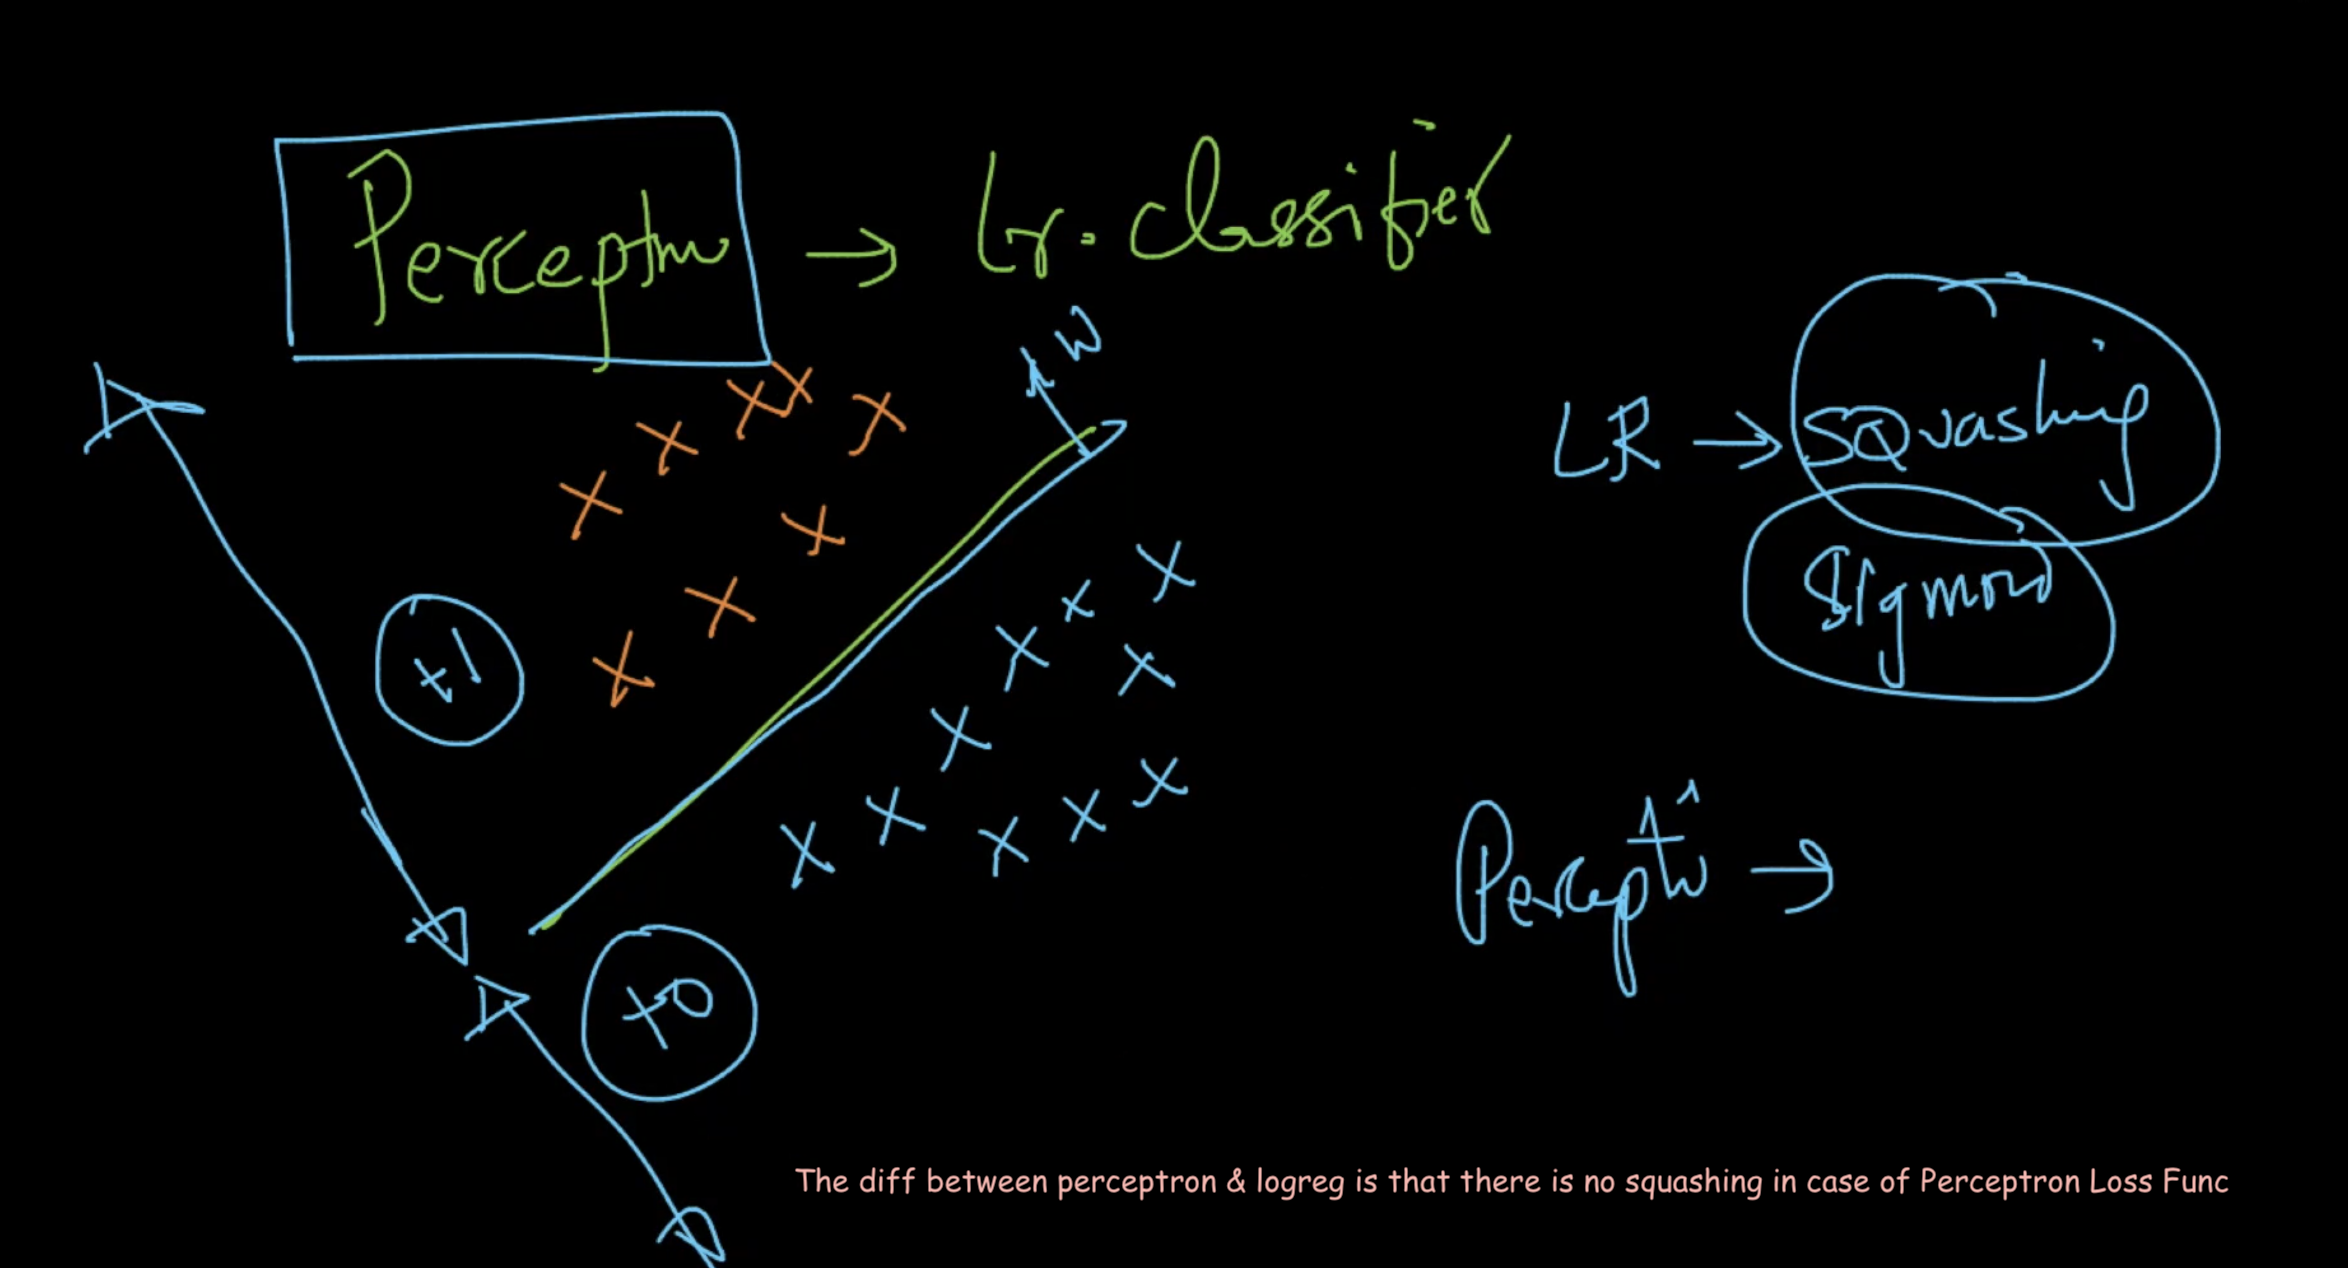 Perceptron → Lr. classifier
W
LR → Squashing
Sigmoid
+1
Perceptron →
+0
The diff between perceptron & logreg is that there is no squashing in case of Perceptron Loss Func